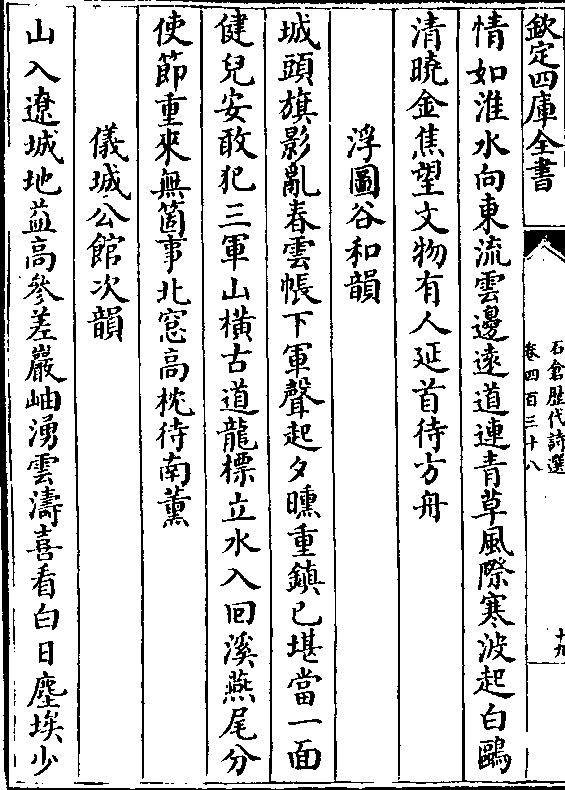 欽定四庫全書
石倉歷代詩選
卷四百三十八
十九
情如淮水向東流雲邊遠道連青草風際寒波起白鷗
清曉金焦望文物有人延首待方舟
浮圖谷和韻
城頭旗影亂春雲帳下軍聲起夕曛重鎮已堪當一面
健兒安敢犯三軍山横古道龍標立水入囘溪燕尾分
使節重來無箇事北窓高枕待南薰
儀城公館次韻
山入遼城地益高參差巖岫湧雲濤喜看白日塵埃少